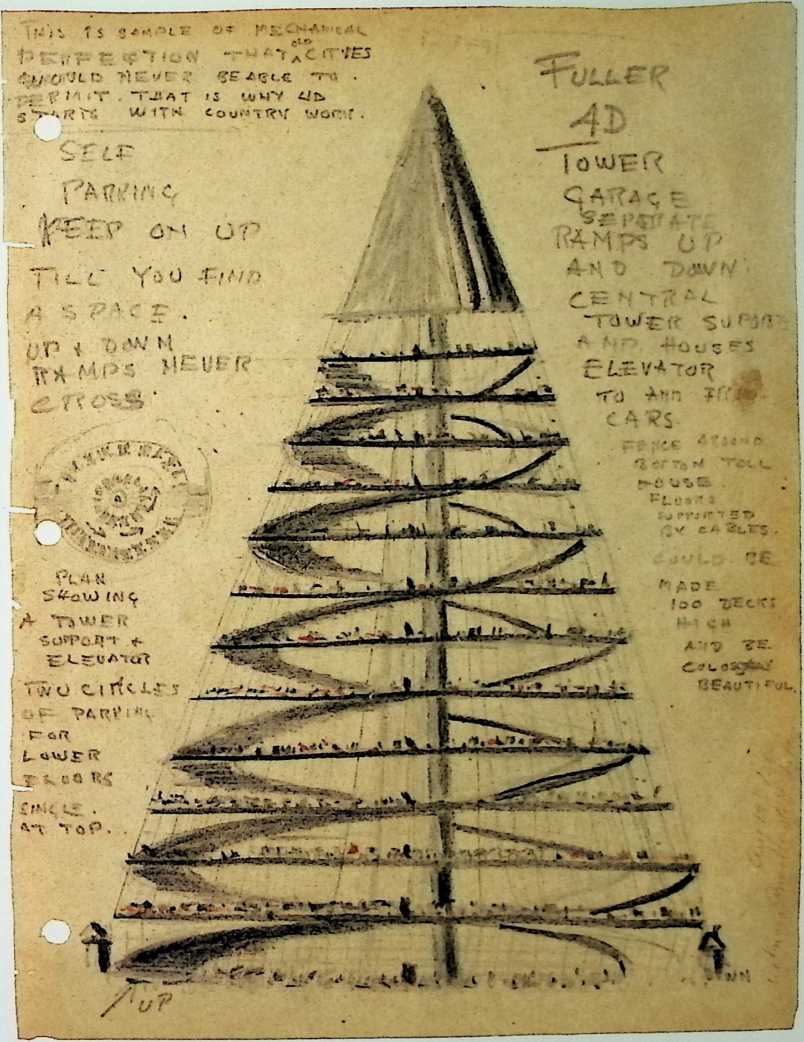 THIS IS SAMPLE OF MECHANICAL
PERFECTION THAT OLD CITIES
WOULD NEVER BE ABLE TO.
PERMIT. THAT IS WHY 4D
STARTS WITH COUNTRY WORK.
SELF
PARKING
KEEP ON UP
TILL YOU FIND
A SPACE.
UP & DOWN
RAMPS NEVER
CROSS
PLAN
SHOWING
A TOWER
SUPPORT &
ELEVATOR
TWO CIRCLES
OF PARKING
FOR
LOWER
FLOORS
SINGLE.
AT TOP..
UP
FULLER
4D
TOWER
GARAGE
SEPERATE
RAMPS UP
AND DOWN
CENTRAL
TOWER SUPORTS
AND HOUSES
ELEVATOR
TO AND FROM
CARS.
FENCE AROUND
BOTTOM TOLL
HOUSE.
FLOORS
SUPPORTED
BY CABLES.
COULD BE
MADE
100 DECKS
HIGH
AND BE
BEAUTIFUL.
DOWN